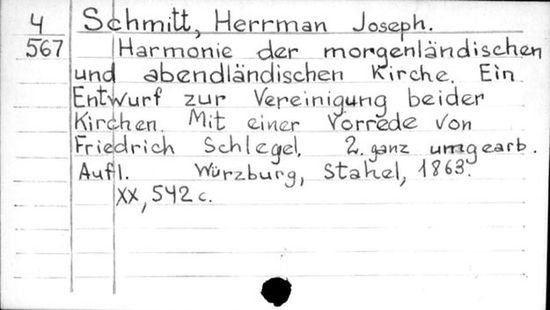 4 Schmitt, Herrman Joseph.
567 Harmonie der morgenländischen
und abendländischen Kirche. Ein
Entwurf zur Vereinigung beider
Kirchen. Mit einer Vorrede von
Friedrich Schlegel. 2. ganz umgearb.
Aufl. Würzburg, Stahel, 1863.
XX, 542 c.